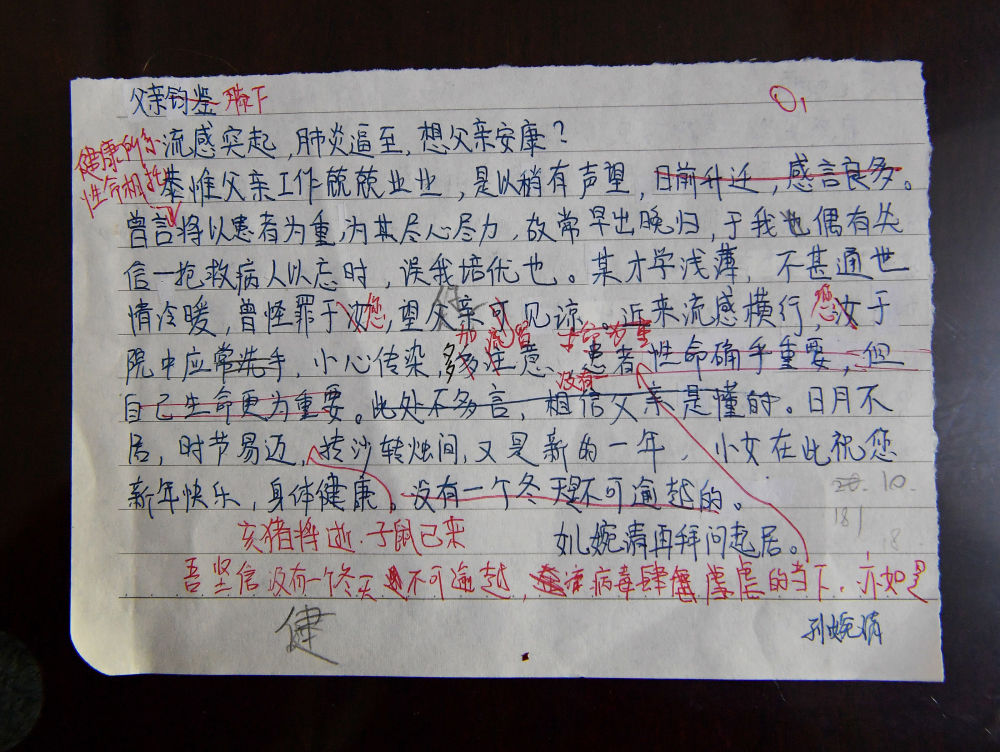 父亲钧鉴 膝下
流感突起,肺炎逼至,想父亲安康?
健康所系
性命相托
恭惟父亲工作兢兢业业,是以稍有声望,日前升迁,感言良多。
曾言将以患者为重,为其尽心尽力,故常早出晚归,于我也偶有失
信一抢救病人以忘时,误我培优也。某才学浅薄,不甚通世
情冷暖,曾怪罪于汝您,望父亲可见谅。近来流感横行,您汝于
院中应常洗手,小心传染,多注意、患者性命确乎重要,但
自己生命更为重要。此处不多言,相信父亲是懂的。日月不
没有一
居,时节易迈,抟沙转烛间,又是新的一年,小女在此祝您
新年快乐,身体健康。没有一个冬天是不可逾越的。
亥猪将逝.子鼠已来
女儿婉清再拜问起居。
吾坚信没有一个冬天不可逾越,病毒肆虐的当下,亦如是
孙婉清
健
10.
181
18